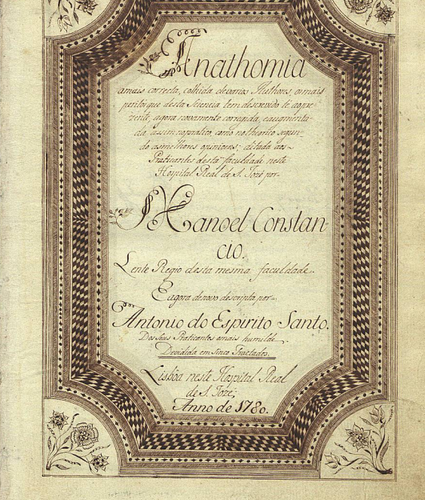 Anathomia
amais correcta, colhida devarios Authores, osmais
peritos que desta sciencia tem descrevido te opre-
zente, agora novamente corrigida, eaugmenta-
da, assim no pratico, como no theorico segun-
do asmelhores opinioens; ditada aos
Praticantes desta faculdade neste
Hospital Real de S. Joze por
Manoel Constan-
cio.
Lente Regio desta mesma faculdade
E agora denovo descripta por
Antonio do Espirito Santo.
Dos seus Praticantes omais humilde
Devidida em sinco Tractados.
Lisboa neste Hospital Real
de S. Joze;
Anno de 1780.